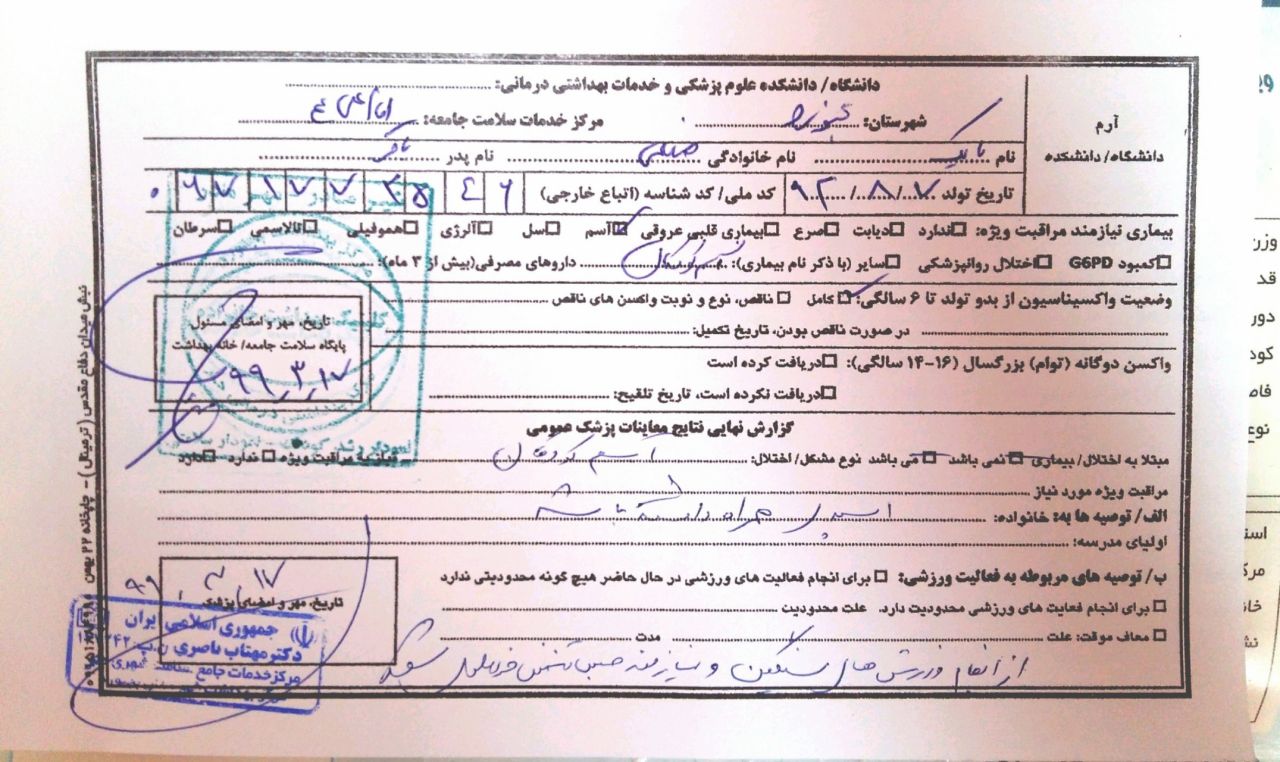 دانشگاه/ دانشکده علوم پزشکی و خدمات بهداشتی درمانی:
آرم
دانشگاه/ دانشکده
شهرستان: مرکز خدمات سلامت جامعه: امام علی ع
نام نام خانوادگی نام پدر
تاریخ تولد ۹۲/۸/۷ کد ملی/ کد شناسه (اتباع خارجی)
بیماری نیازمند مراقبت ویژه: ☐ندارد ☐دیابت ☐صرع ☐بیماری قلبی عروقی ☐آسم ☐سل ☐آلرژی ☐هموفیلی ☐تالاسمی ☐سرطان
☐کمبود G6PD ☐اختلال روانپزشکی ☐سایر (با ذکر نام بیماری): داروهای مصرفی(بیش از ۳ ماه):
وضعیت واکسیناسیون از بدو تولد تا ۶ سالگی: ☐ کامل ☐ ناقص، نوع و نوبت واکسن های ناقص
در صورت ناقص بودن، تاریخ تکمیل:
تاریخ، مهر و امضای مسئول
پایگاه سلامت جامعه/ خانه بهداشت
۹۹.۳.۱۷
واکسن دوگانه (توام) بزرگسال (۱۶-۱۴ سالگی): ☐دریافت کرده است
☐دریافت نکرده است، تاریخ تلقیح:
گزارش نهایی نتایج معاینات پزشک عمومی
مبتلا به اختلال/ بیماری ☐ نمی باشد ☐ می باشد نوع مشکل/ اختلال: آسم کودکان نیاز به مراقبت ویژه ☐ ندارد ☐دارد
مراقبت ویژه مورد نیاز
الف/ توصیه ها به: خانواده: اسپری همراه داشته باشد
اولیای مدرسه:
ب/ توصیه های مربوطه به فعالیت ورزشی: ☐ برای انجام فعالیت های ورزشی در حال حاضر هیچ گونه محدودیتی ندارد
☐ برای انجام فعایت های ورزشی محدودیت دارد. علت محدودیت
☐ معاف موقت: علت مدت
از انجام ورزش های سنگین و نیازمند حبس تنفس خودداری شود
۹۹.۳.۱۷
تاریخ، مهر و امضای پزشک
جمهوری اسلامی ایران
دکتر مهتاب ناصری
مرکز خدمات جامع سلامت شهری
نبش میدان دفاع مقدس ( ترمینال ) - چاپخانه ۲۲ بهمن